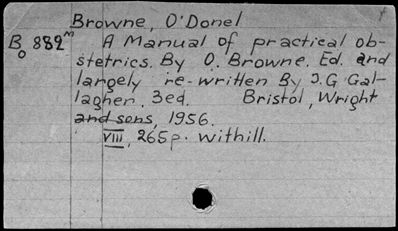 Browne, O'Donel
Bo 882m A Manual of practical ob-
stetrics. By O. Browne. Ed. and
largely re-written By J.G Gal-
lagher. 3ed. Bristol, Wright
and sons, 1956.
VIII, 265p. withill.